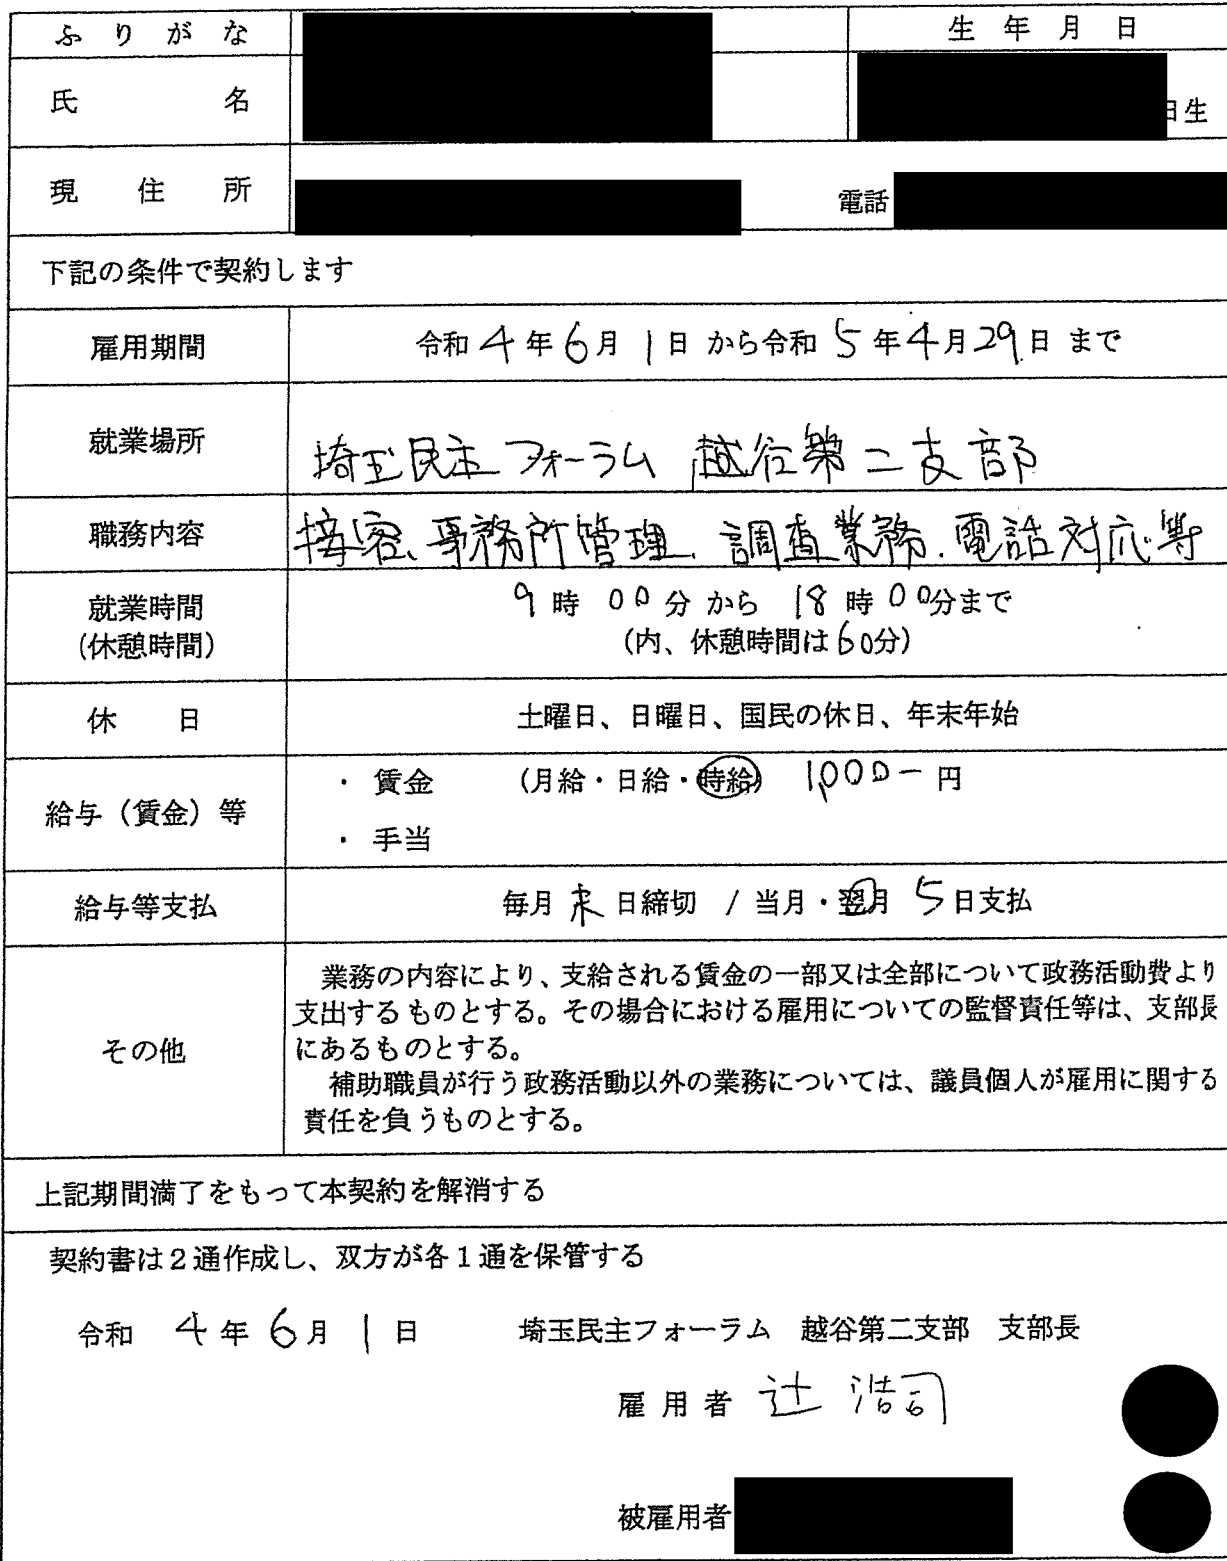 ふりがな
生年月日
氏名
日生
現住所
電話
下記の条件で契約します
雇用期間
令和4年6月1日から令和5年4月29日まで
就業場所
埼玉民主フォーラム 越谷第二支部
職務内容
接客、事務所管理、調査業務、電話対応等
就業時間
(休憩時間)
9時00分から18時00分まで
(内、休憩時間は60分)
休日
土曜日、日曜日、国民の休日、年末年始
給与(賃金)等
・賃金 (月給・日給・時給) 1,000-円
・手当
給与等支払
毎月末日締切 / 当月・翌月 5日支払
その他
業務の内容により、支給される賃金の一部又は全部について政務活動費より
支出するものとする。その場合における雇用についての監督責任等は、支部長
にあるものとする。
補助職員が行う政務活動以外の業務については、議員個人が雇用に関する
責任を負うものとする。
上記期間満了をもって本契約を解消する
契約書は2通作成し、双方が各1通を保管する
令和 4年6月1日 埼玉民主フォーラム 越谷第二支部 支部長
雇用者 辻 浩司
被雇用者